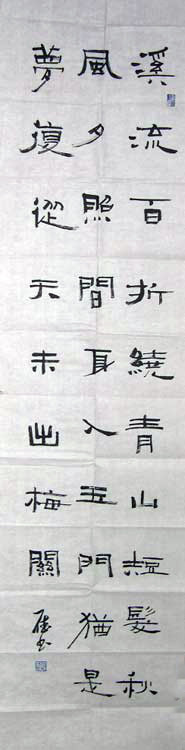 溪流百折繞青山短髮秋
風夕照間身入玉門猶是
夢復從天末出梅關